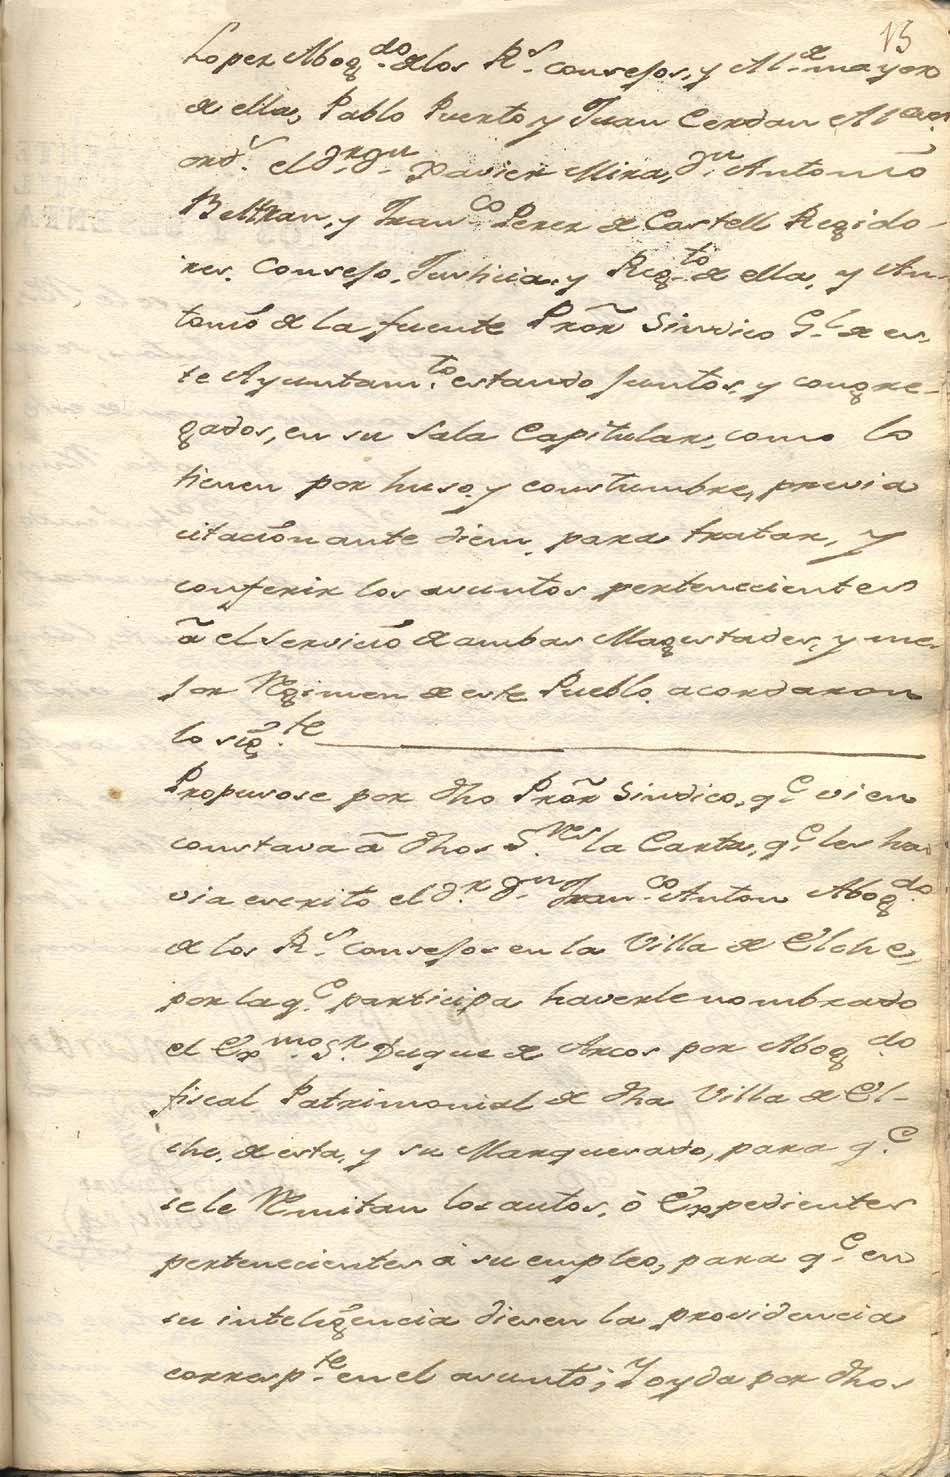 13
Lopez Abog.do de los R.s Consejos, y Al.de mayor
de ella, Pablo Puerto y Juan Cerdan Alcaes
ord.s el D.r D.n Xavier Mira, D.n Antonio
Beltran, y Fran.co Perez de Castell Regido-
res. Consejo, Justicia, y Reg.to de ella, y An-
tonio de la fuente Pror Sindico G.l de es-
te Ayuntam.to estando juntos, y congre-
gados, en su Sala Capitular, como lo
tienen por huso, y constumbre, previa
citacion ante diem, para tratar, y
conferir los asuntos pertenecientes
à el servicio de ambas Magestades, y me-
jor Regimen de este Pueblo, acordaron
lo sig.te
Propusose por dho Pror Sindico, q.e vien
constava à dhos S.res la Carta, q.e les ha-
via escrito el D.r D.n Fran.co Anton Abog.do
de los R.s Consejos en la Villa de Elche,
por la q.e participa haverle nombrado
el Ex.mo S.r Duque de Arcos por Abog.do
fiscal Patrimonial de dha Villa de El-
che, de esta, y su Marquesado, para q.e
se le Remitan los autos, ò Expedientes
pertenecientes à su empleo, para q.e en
su inteligencia diesen la providencia
corresp.te en el asunto; Y oyda por dhos